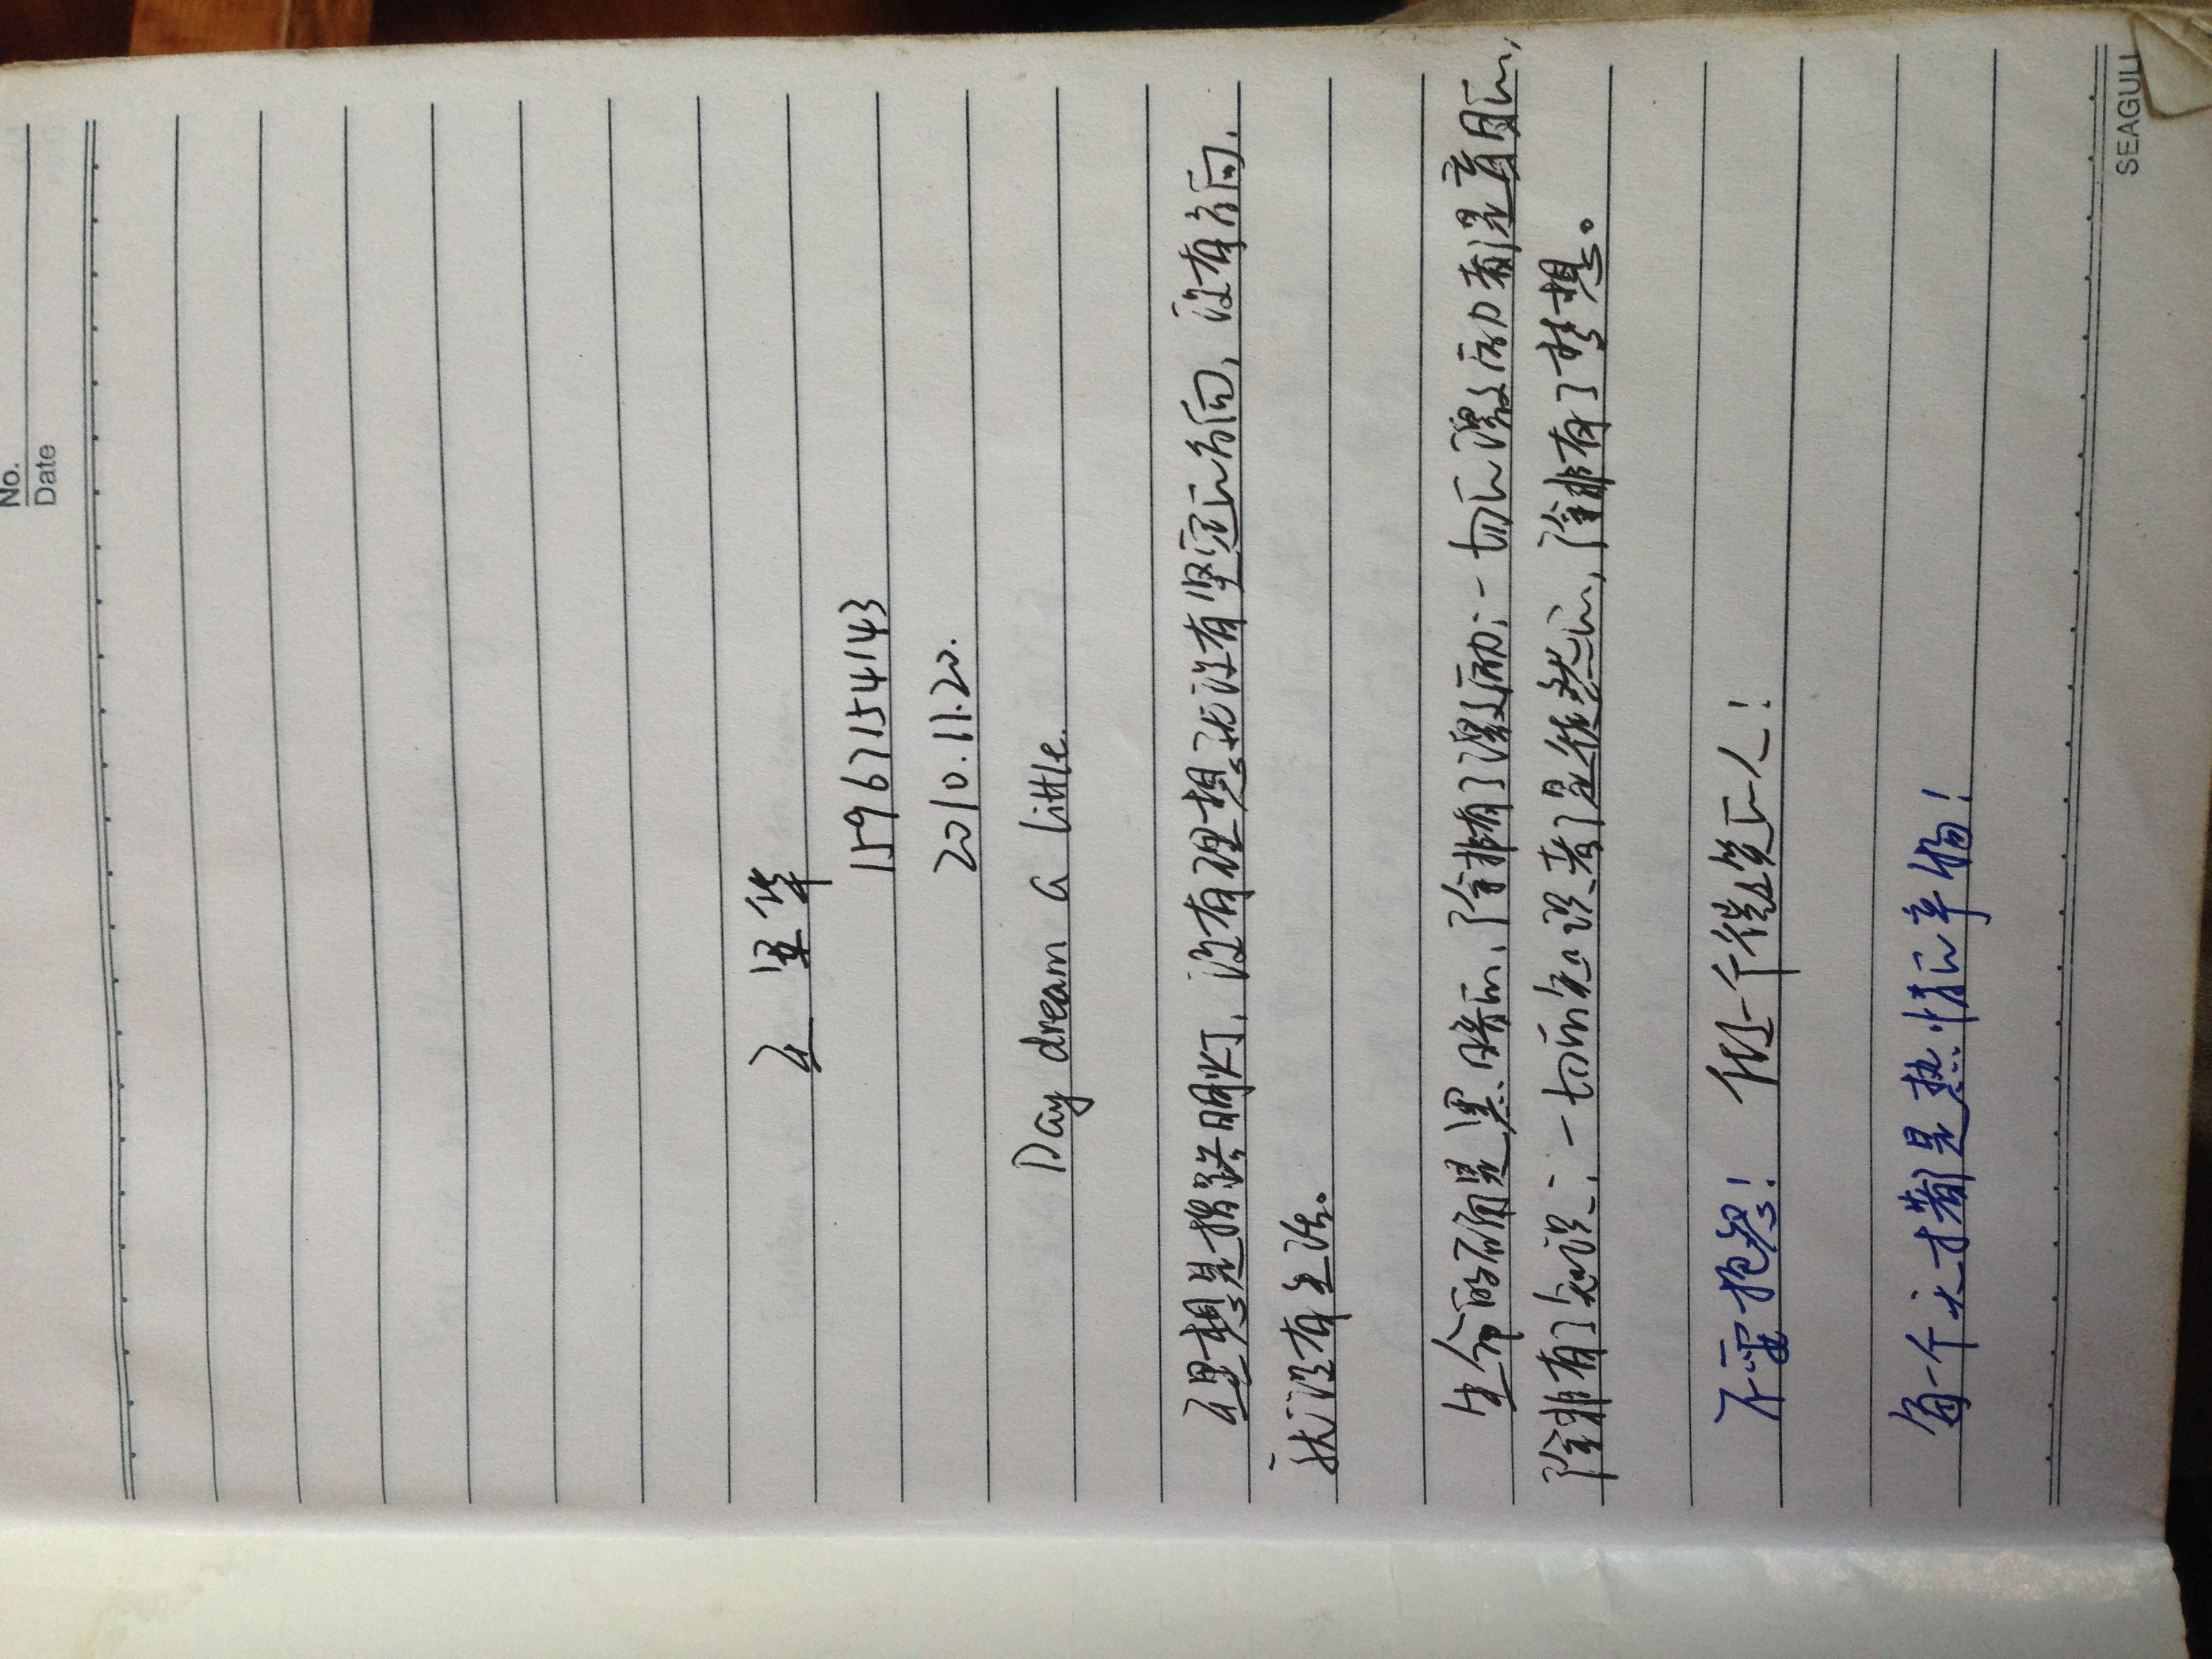 No.
Date
王 坚华
15967154143
2010.11.20.
Day dream a little.
理想是指路明灯,没有理想就没有坚定的方向,没有方向,
就没有生活。
生命的确是黑暗的,除非有了激励;一切的激励都是盲目的,
除非有了知识;一切的知识都是徒然的,除非有了梦想。
不要抱怨! 做一个微笑的人!
每一个天才都是热情的产物!
SEAGULL